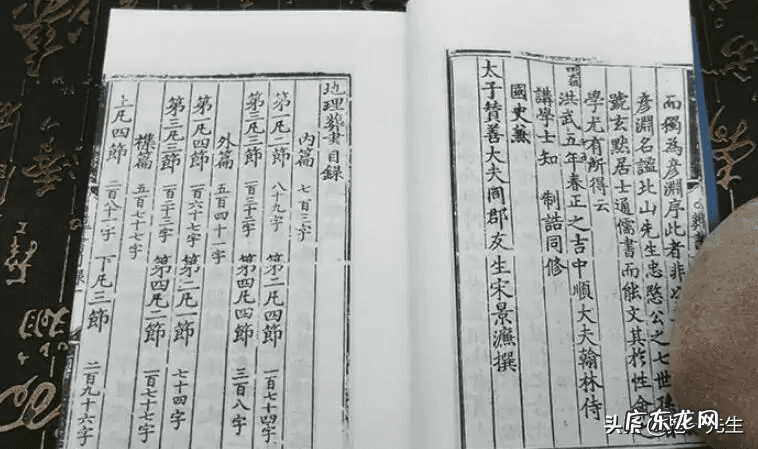 而獨為彥淵序此者非
彥淵名謐北山先生忠愍公之七世孫
號玄默居士通儒書而能文其於性命
學尤有所得云
洪武五年春正之吉中順大夫翰林侍
講學士知 制誥同修
國史兼
太子贊善大夫同郡友生宋景濂撰
地理葬書目錄
內篇 七百三字
第一凡二節 八十九字 第二凡四節 一百七十四字
第三凡三節 一百三十字 第四凡四節 三百八字
外篇 五百四十一字
第一凡四節 一百六十七字 第二凡一節 七十四字
第三凡三節 一百二十三字 第四凡二節 一百七十七字
襍篇 五百七十七字
上凡四節 二百八十一字 下凡三節 二百九十六字
头条 广东龙网 先生